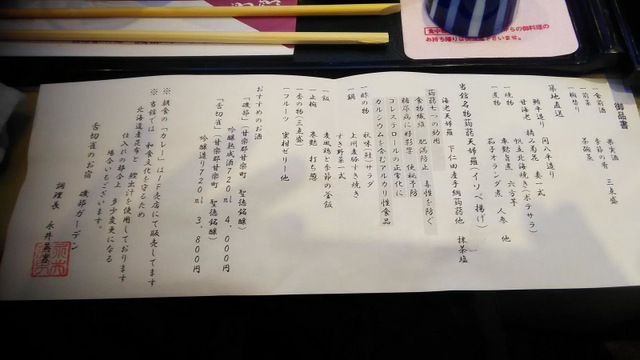 御品書
一食前酒 果実酒
一前菜 季節の肴 三点盛
一椀替り 茶碗蒸
築地直送
鯛平造り 間八平造り
甘海老 妻一式
一焼物 帆立北海焼き(ポテサラ)
寿艶煮 六方芋
一煮物 茄子オランダ煮 人参 他
当館名物蒟蒻天婦羅(イソベ揚げ)
海老天婦羅 下仁田産手綱蒟蒻他 抹茶塩
蒟蒻七つの効用
食物繊維 肥満防止 毒性を防ぐ
糖尿病に移影響 便秘予防
コレステロールの正常化に
カルシウムを含むアルカリ性食品
一酢の物 秋味(鮭)サラダ
一鍋 上州産豚すき焼き
すき野菜一式
一飯 麦風鶏と季節の釜飯
一上椀 赤麩 打ち葱
一香の物(三点盛)
一フルーツ 蜜樹ゼリー他
おすすめのお酒
「磯部」(甘楽郡甘楽町 聖徳銘醸)
吟醸熟成酒720ml 4,000円
「舌切雀」(甘楽郡甘楽町 聖徳銘醸)
吟醸造り720ml 3,800円
※ 朝食の「カレー」は1F売店にて販売してます
※ 当館では 和食文化を守るため
北海道産昆布と 鰹出汁を使用しております
仕入れの都合上 多少変更になる
場合もございます。
舌切雀のお宿 磯部ガーデン
調理長
からの御料理の
お持ち帰りは
いませ。